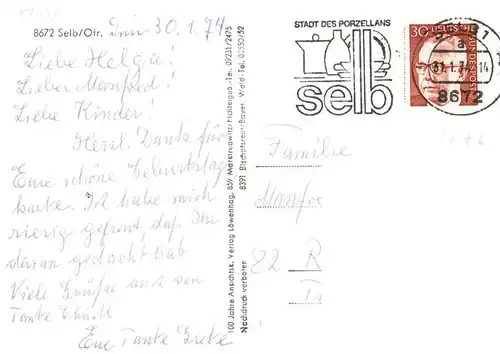 8672 Selb/Ofr. Den 30.1.74
Liebe Helga!
Lieber Manfred!
Liebe Kinder!
Herzl. Danke für
Eure schöne Geburtstag
karte. Ich habe mich
riesig gefreut, daß Ihr
daran gedacht hab
Viele Grüße auch von
Tante
Eure Tante Grete
100 Jahre Ansichtsk. Verlag Löwenhag, 859 Marktredwitz/Fichtelgeb.-Te. 09231/2475
8391 Bischofsreut/Bayer. Wald-Tel. 09550/52
Nachdruck verboten
STADT DES PORZELLANS
selb
30
DEUTSCHE BUNDESPOST
1
a
31.1.74-14
8672
Familie
Manfre
82 R